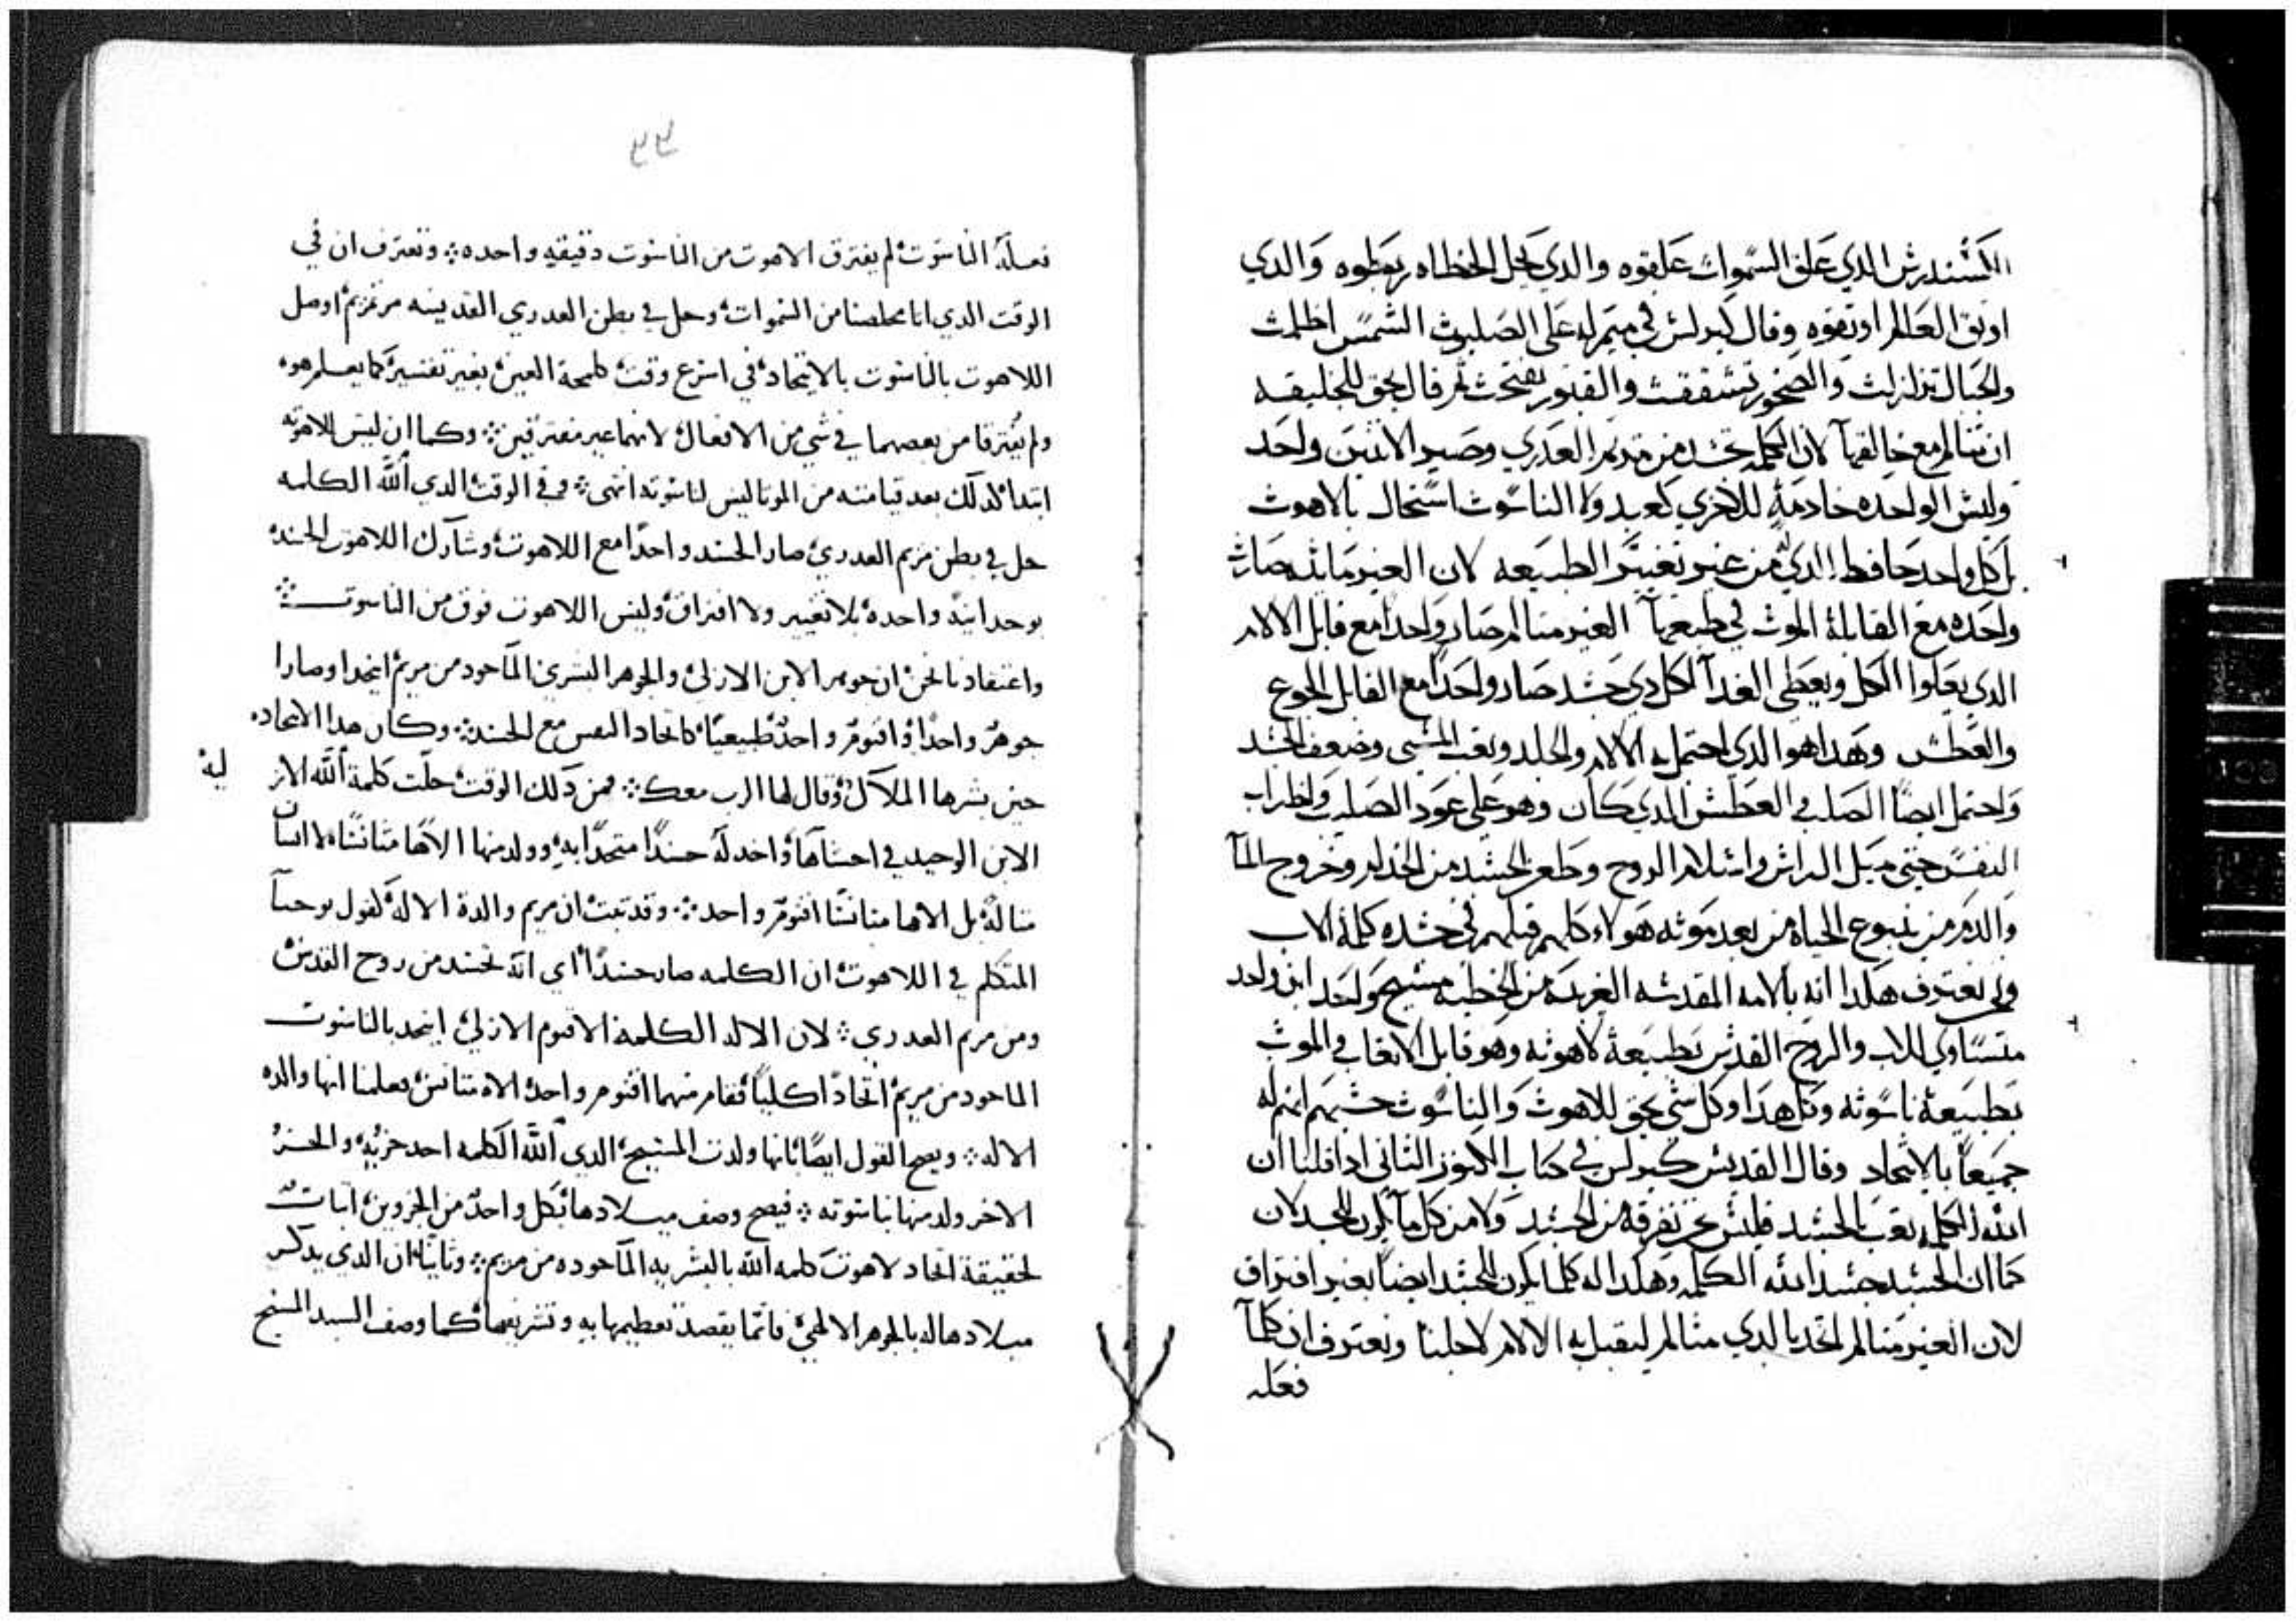 الكسندرس الدي علق السموات علقوه والدي يحل الخطاه ربطوه والدي
اوثق العالم اوثقوه وقال كيرلس في ميمر له على الصلبوت الشمس اظلمت
والجبال تزلزلت والصخور تشققت والقبور تفتحت ثم قال بحق للخليقه
ان تتالم مع خالقها لان الكلمه تجسد من مريم العدري وصير الاثنين واحد
وليس الواحده خادمة للاخري كعبد ولا الناسوت استحال بالاهوت
بل كل واحد حافظ الدي له من غير تغيير الطبيعه لان الغير مايته صارت
واحده مع القابلة الموت في طبعها الغير متالم صار واحدا مع قابل الالام
الدي يعلوا الكل ويعطي الغدآ لكل دي جسد صار واحدا مع القابل الجوع
والعطش وهدا هو الدي احتمل الالام والجلد وتعب المشي وضعف الجسد
واحتمل ايضا الصلب والعطش الدي كان وهو على عود الصليب واضطراب
النفس حتى ميل الراس واسلام الروح وطعن الجسد من الخدام وخروج المآ
والدم من ينبوع الحياه من بعد موته هولاء كلهم قبلهم في جسده كلمة الاب
ونحن نعترف هكدا انه بالامه المقدسه الغريبة من الخطيه مسيح واحد ابن واحد
متساوي للاب والروح القدس بطبيعة لاهوته وهو قابل الاتعاب والموت
بطبيعة ناسوته وكل هدا وكل شي بحق للاهوت والناسوت حسبهم انهم له
جميعا بالاتحاد وقال القديس كيرلس في كتاب الكنوز الثاني ادا قلنا ان
الله الكلمه تعب بالجسد فليس نحن نفرقه من الجسد ولا من كل ما يكون للجسد لان
كما ان الجسد جسد الله الكلمه وهكدا له كلما يكون للجسد ايضا بغير افتراق
لان الغير متالم اتحد بالدي متالم ليقبل به الالام لاجلنا ونعترف ان كلمآ
فعله
٣٣
فعله الناسوت لم يفترق الاهوت من الناسوت دقيقه واحده ونعترف ان في
الوقت الدي اتا مخلصنا من السموات وحل في بطن العدري القديسه مرتمريم اوصل
اللاهوت بالناسوت بالاتحاد في اسرع وقت كلمحة العين بغير تفسير كما يعلم هو
ولم يفترقا من بعضهما في شي من الافعال لانهما غير مفترقين وكما ان ليس للاهوته
ابتدا كدلك بعد قيامته من الموتا ليس لناسوته انتهى ففي الوقت الدي الله الكلمه
حل في بطن مريم العدري صار الجسد واحدا مع اللاهوت وشارك اللاهوت الجسد
بوحدانية واحده بلا تغيير ولا افتراق وليس اللاهوت فوق من الناسوت
واعتقادنا نحن ان جوهر الابن الازلي والجوهر البشري الماخود من مريم اتحدا وصارا
جوهر واحدا واقنوم واحد طبيعيا كاتحاد النفس مع الجسد وكان هدا الاتحاد
حين بشرها الملاك وقال لها الرب معك فمن دلك الوقت حلت كلمة الله الاز
لية
الابن الوحيد في احشاها واخد له جسدا متحدا به وولد منها الاها متانسا لا انسان
متاله بل الاها متانسا اقنوم واحد وقد تبت ان مريم والدة الاله لقول يوحنا
المتكلم في اللاهوت ان الكلمه صار جسدا اي انه تجسد من روح القدس
ومن مريم العدري لان الاله الكلمة الاقنوم الازلي اتحد بالناسوت
الماخود من مريم اتحادا كليا فقام منهما اقنوم واحد الاه متانس فعلمنا انها والده
الاله ويصح القول ايضا بانها ولدت المسيح الدي الله الكلمه احد جزيه والجزء
الاخر ولد منها بناسوته فيصح وصف ميلادها بكل واحد من الجزوين اتبات
لحقيقة اتحاد لاهوت كلمه الله بالبشريه الماخوده من مريم وتانيا ان الدي يدكر
ميلادها له بالجوهر الالهي فانما يقصد تعظيمها به وتشريفها كما وصف السيد المسيح